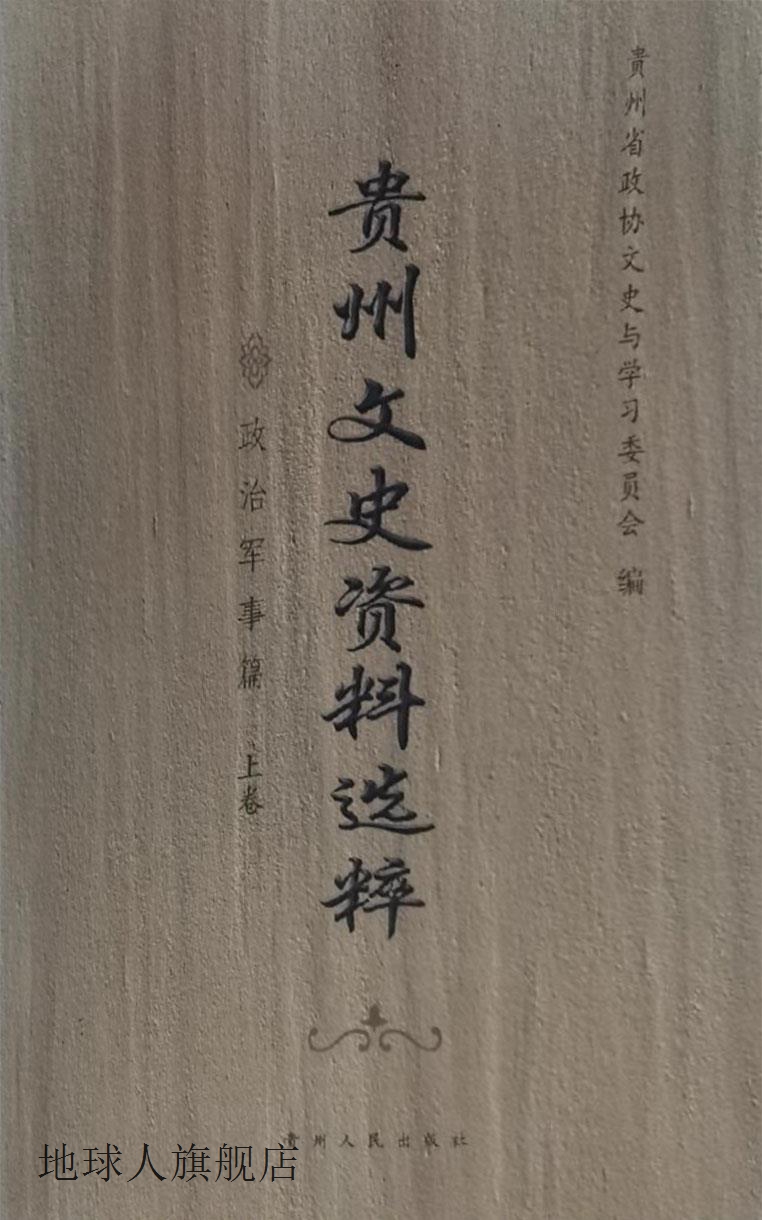 贵州省政协文史与学习委员会 编
贵州文史资料选粹
政治军事篇 上卷
贵州人民出版社
地球人旗舰店